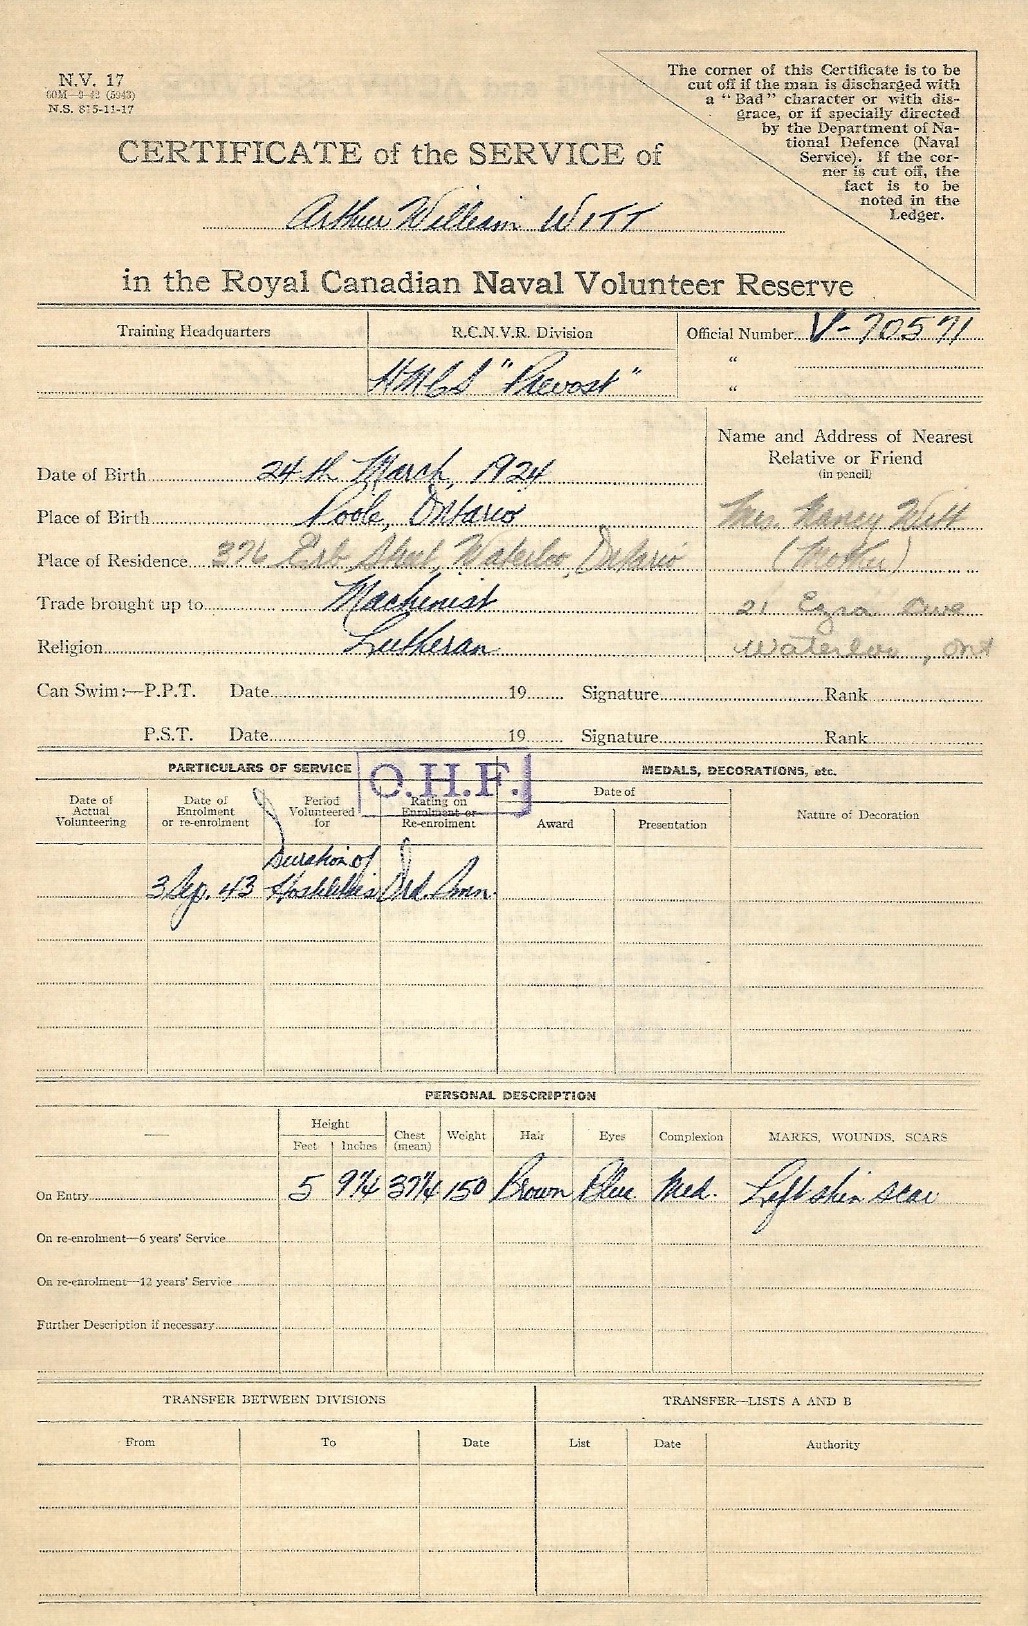 N.V. 17
60M—9-42 (5943)
N.S. 815-11-17
The corner of this Certificate is to be
cut off if the man is discharged with
a "Bad" character or with dis-
grace, or if specially directed
by the Department of Na-
tional Defence (Naval
Service). If the cor-
ner is cut off, the
fact is to be
noted in the
Ledger.
CERTIFICATE of the SERVICE of
Arthur William WITT
in the Royal Canadian Naval Volunteer Reserve
Training Headquarters R.C.N.V.R. Division Official Number V-70571
HMCS "Prevost"
"
"
Name and Address of Nearest
Relative or Friend
(in pencil)
Date of Birth 24th March, 1924
Place of Birth Poole, Ontario Mrs. Nancy Witt
Place of Residence 376 Erb Street, Waterloo, Ontario (Mother)
Trade brought up to Machinist 21 Ezra Ave
Religion Lutheran Waterloo, Ont
Can Swim:—P.P.T. Date 19 Signature Rank
P.S.T. Date 19 Signature Rank
PARTICULARS OF SERVICE O.H.F. MEDALS, DECORATIONS, etc.
Date of Actual Volunteering Date of Enrolment or re-enrolment Period Volunteered for Rating on Enrolment or Re-enrolment Date of Award Presentation Nature of Decoration
3 Sep. 43 Duration of Hostilities Ord. Smn.
PERSONAL DESCRIPTION
— Height Feet Inches Chest (mean) Weight Hair Eyes Complexion MARKS, WOUNDS, SCARS
On Entry 5 9¼ 37¼ 150 Brown Blue Med. Left shin scar
On re-enrolment—6 years' Service
On re-enrolment—12 years' Service
Further Description if necessary
TRANSFER BETWEEN DIVISIONS TRANSFER—LISTS A AND B
From To Date List Date Authority